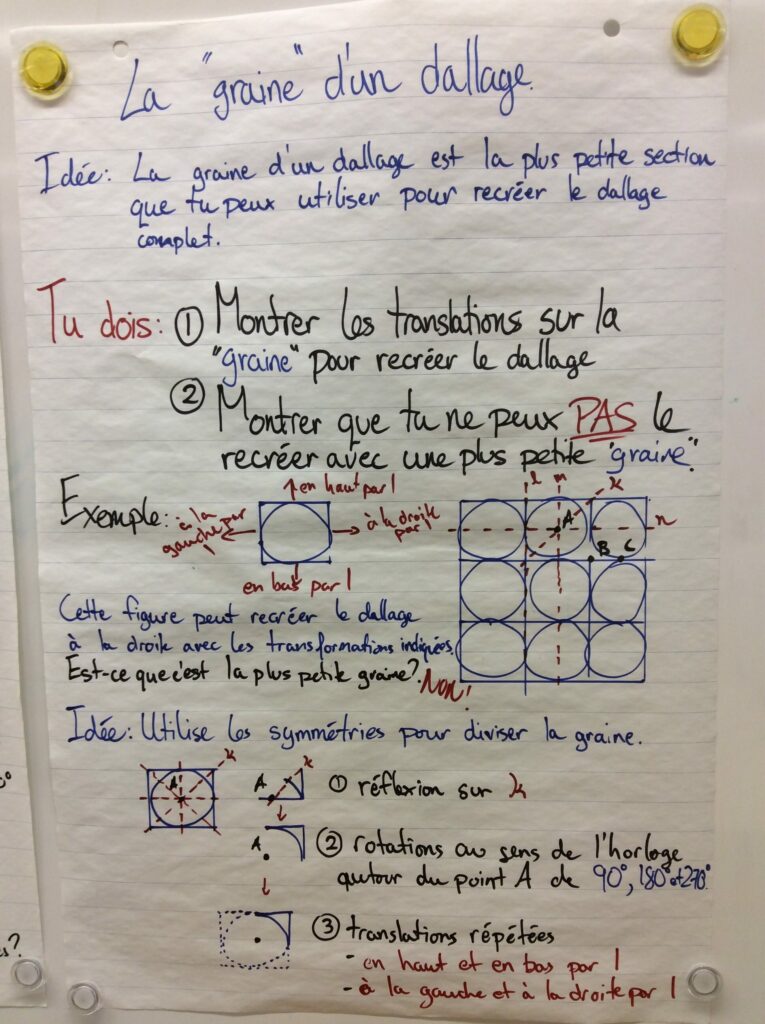 La "graine" d'un dallage.
Idée: La graine d'un dallage est la plus petite section
que tu peux utiliser pour recréer le dallage
complet.
Tu dois: ① Montrer les translations sur la
"graine" pour recréer le dallage
② Montrer que tu ne peux PAS le
recréer avec une plus petite "graine".
Exemple:
en haut par 1
à la
gauche par
1
à la droite
par 1
en bas par 1
l m k
A
n
B C
Cette figure peut recréer le dallage
à la droite avec les transformations indiquées.
Est-ce que c'est la plus petite graine? Non!
Idée: Utilise les symmétries pour diviser la graine.
k
A
A k
① réflexion sur k
A
② rotations au sens de l'horloge
autour du point A de 90°, 180° et 270°
③ translations répétées
- en haut et en bas par 1
- à la gauche et à la droite par 1